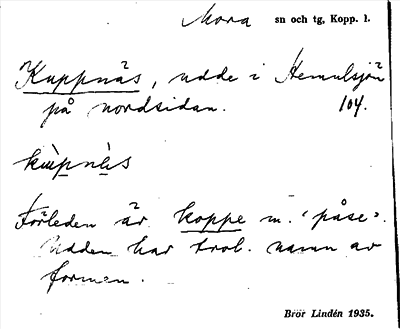 Mora sn och tg, Kopp. l.
Kuppnäs, udde i Hemulsjön
på nordsidan. 104.
Förleden är koppe m. 'påse'.
Udden har trol. namn av
formen.
Bror Lindén 1935.